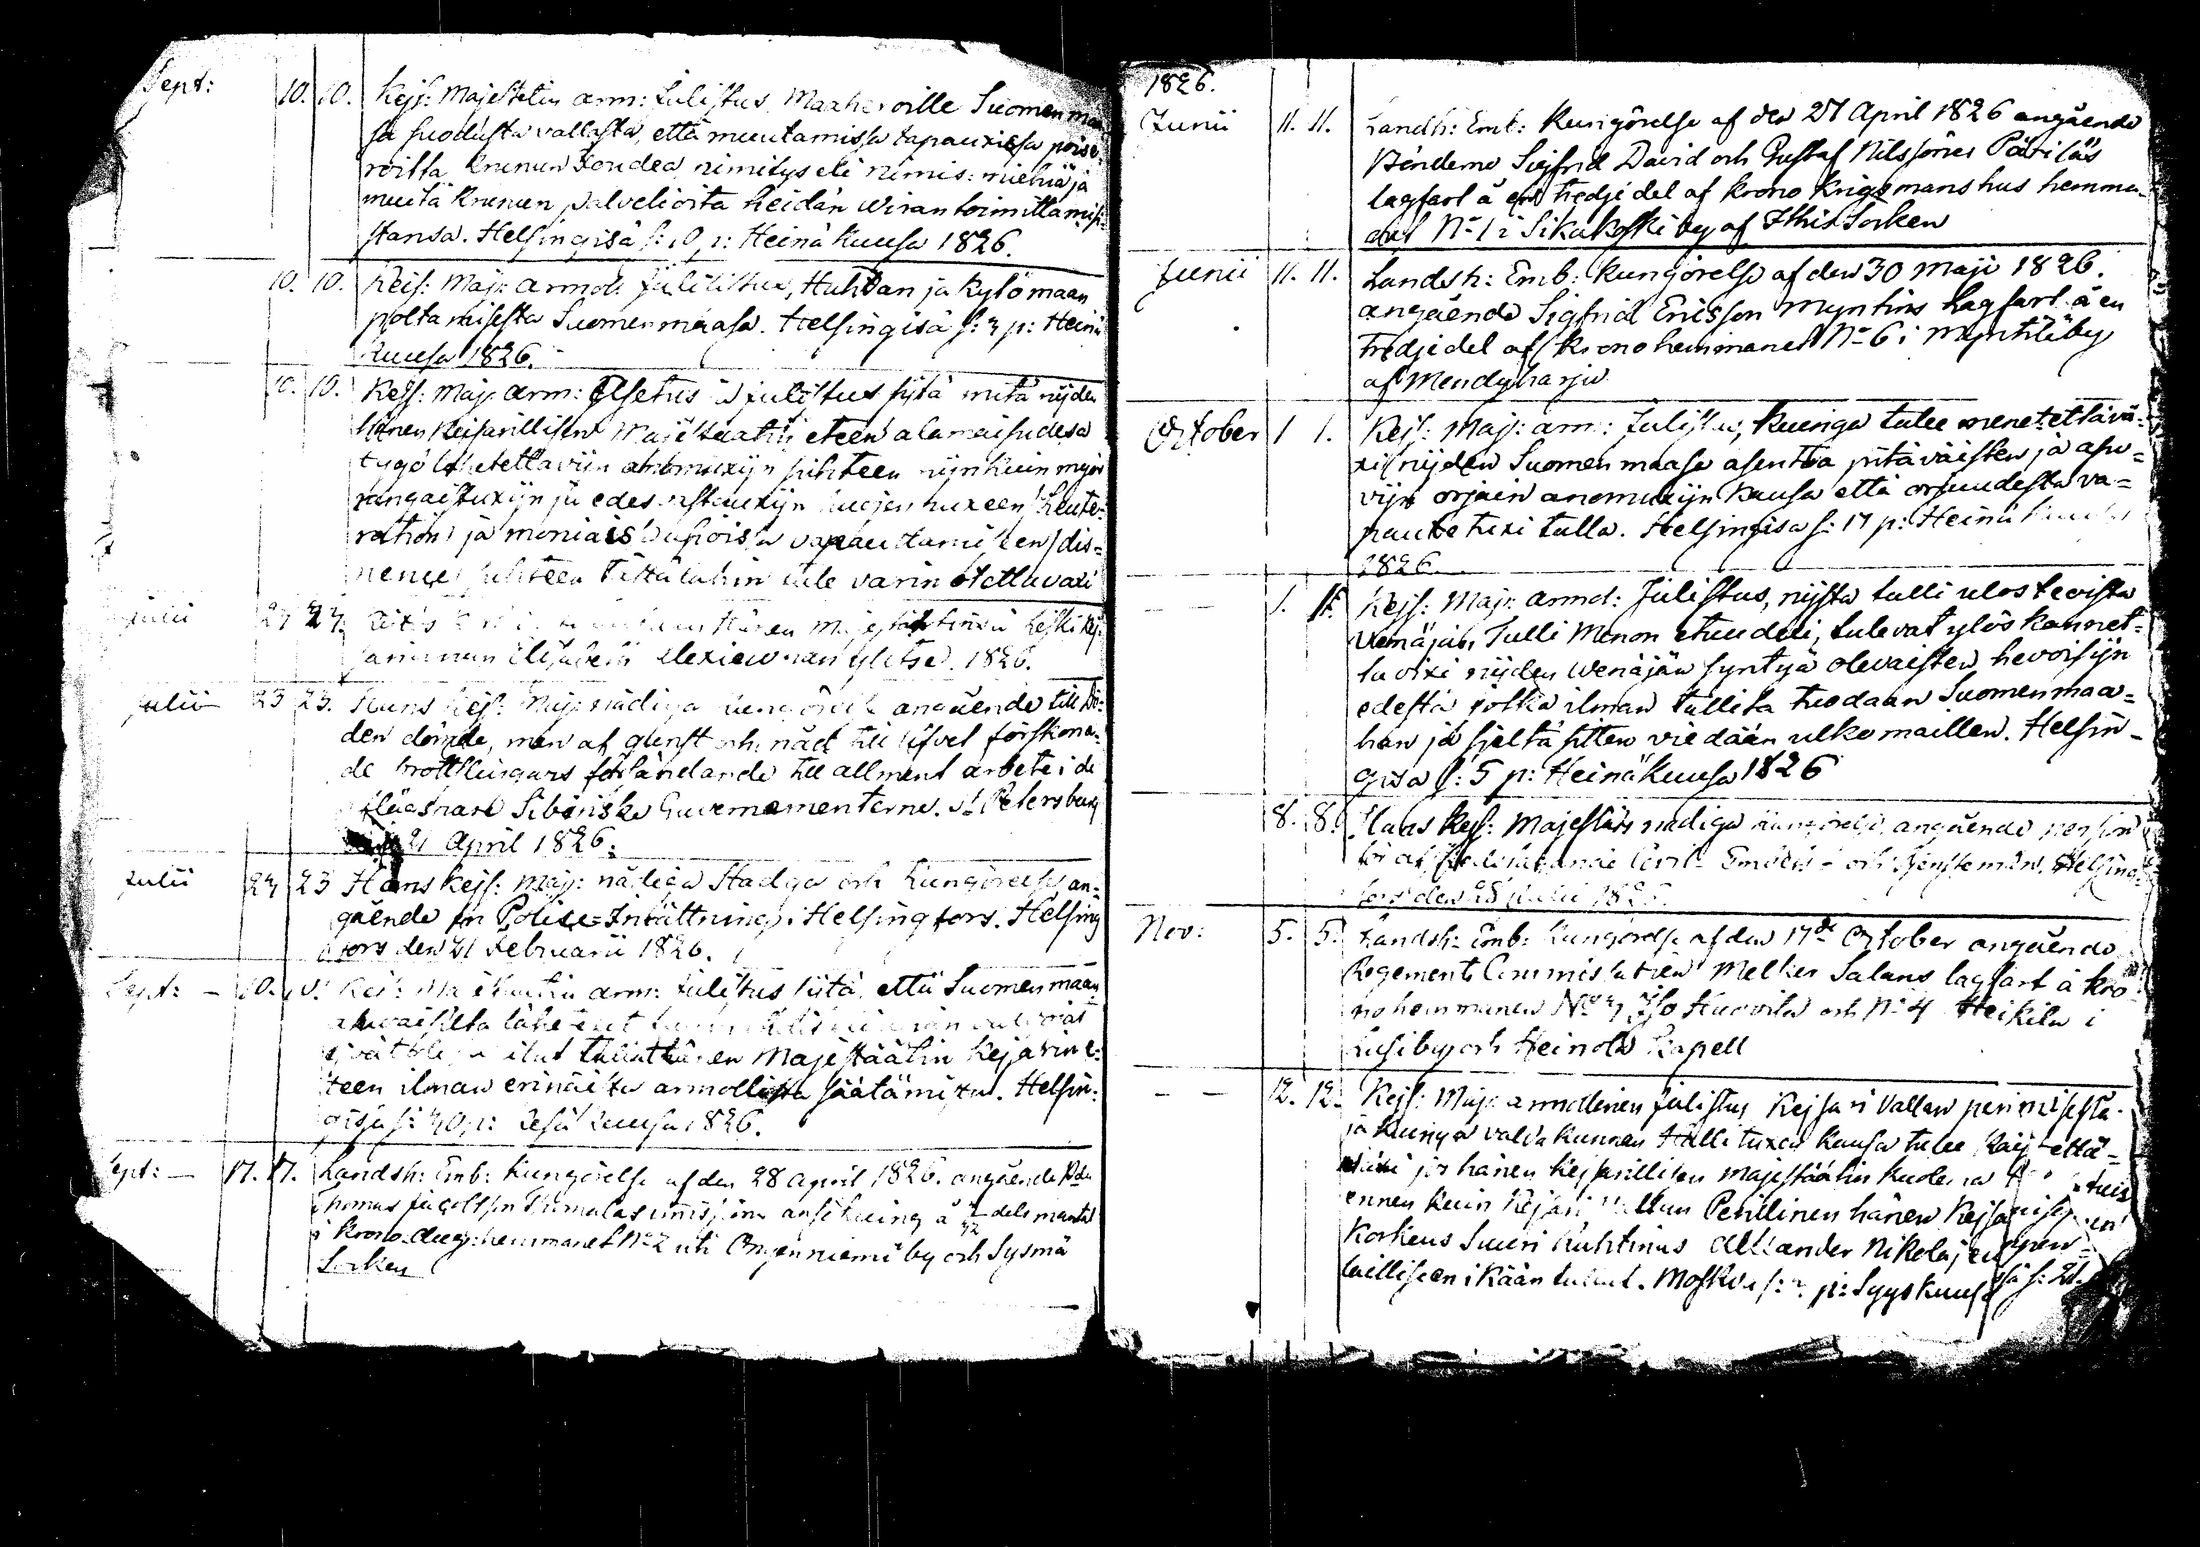 Sept: 10. 10. Kejs: Majestetin arm: Julistus Maaherroille Suomenmaa
sa suodusta vallasta, että muutamissa tapauxissa poisa
roitta Krunun Foudea, nimitys eli nimis: miehiä ja
muita Krunun palvelioita heidän wiran toimittamis
stansa. Helsingisä s: 10 p: Heinä Kuusa 1826.
10. 10. Keis: Maj: armol: Julistus, Huhdan ja Kytömaan
polttamisesta Suomenmaasa. Helsingisä s: 3 p: Heinä
Kuusa 1826.
10. 10. Kejs: Maj: arm: Asetus ja julistus siitä mitä nijden
hänen Keisarillisen Majestaatin eteen alamaisudesa
tygö lähetettäviin anomuxijn suhteen nijnkuin myös
rangaistuxijn ja edesvastauxijn huojennuxeen (Leute-
ration) ja moniaisa asioisa vapauttamiseen (dis-
pence) suhteen tästälähin tule varin otettavaxi
Julii 23 23. Hänen Majestätinsä Leski Kej
sarinnan Elisabeth Alexiewnan ylitse. 1826.
Julii 23 23. Hans Kejs: Maj: nådiga Kungörelse angående till Dö-
den dömde, men af gunst och nåd till lifvet förskona-
de brottslingars försändande till allment arbete i de
aflägsnare Sibiriska Guvernementerne. St Petersburg
21 April 1826.
Julii 23 23 Hans Kejs: Maj: nådiga Stadga och Kungörelse, an-
gående en Police-Inrättning i Helsingfors. Helsing
fors den 21 Februarii 1826.
Sept: - 10. 10. Kejs: Majestätin arm: Julistus siitä, että Suomenmaan
asuvaisilta lähetetyt
eivät ole tulla hänen Majestäätin Kejsarin e-
teen ilman erinäistä armollista säätämistä. Helsin-
gisä s: 30 p: Kesä Kuusa 1826.
Sept: - 17. 17. Landsh: Emb: Kungörelse af den 28 April 1826. angående
Thomas ansökning å 1/12 dels mantal
i krono hemmanet No 2 uti Onkenniemi by och Sysmä
Socken
1826.
Junii 11. 11. Landh: Emb: Kungörelse af den 27 April 1826 angående
Bönderne Sigfrid David och Gustaf Nilssöner Päriläs
lagfart å en tredjedel af krono Krigsmanshus hemman
det No 1 i Sikakoski by af Ithis Socken
Junii 11. 11. Landsh: Emb: kungörelse af den 30 Maji 1826.
angående Sigfrid Ericsson Myntins Lagfart å en
tredjedel af krono hemmanet No 6 i Myntilä by
af Mendyharju
October 1 1. Kejs: Maj: arm: Julistus, Kuinga tulee menetettävä-
xi nijden Suomen maasa asentoa pitäväisten ja asu-
vijn orjain anomuxijn kansa että orjuudesta va-
pautetuxi tulla. Helsingisa s: 17 p: Heinä Kuusa
1826.
- - 1. 1. Kejs: Maj: armol: Julistus, nijstä tulli ulosteoista
Venäjän Tulli Monon etuudexi, tulevat ylöskannet-
tavixi nijden Wenäjän syntyä olevaisten hevoisijn
edestä jotka ilman tullita tuodaan Suomenmaa-
han ja sieltä sitten viedään ulkomaillen. Helsin-
gisa s: 5 p: Heinä Kuusa 1826
8. 8. Hans Kejs: Majestäts nådiga kungörelse, angående pension
för afskedstagande Civil- Embets- och tjenstemän. Helsing-
fors den 28 Julii
Nov: 5. 5. Landsh: Emb: Kungörelse af den 17de October angående
Regements Commissarien Melker Salans lagfart å kro-
nohemmanen No 3 Iso Huovila och No 4 Heikilä i
Lusi by och Heinola Kapell
- - 12. 12. Kejs: Maj: armollinen julistus Kejsari Vallan perimisestä
ja Kuinga valda Kunnan Hallituxen kansa tulee käytettä-
växi jos hänen Kejserillisen Majestäätin kuolema
ennen kuin Kejsari Vallan Perillinen hänen Kejsarisen
Korkeus Suuri Ruhtinas Allexander Nikolajewitsch
laillisen ikään tullut. Moskva s: p: Syyskuusa